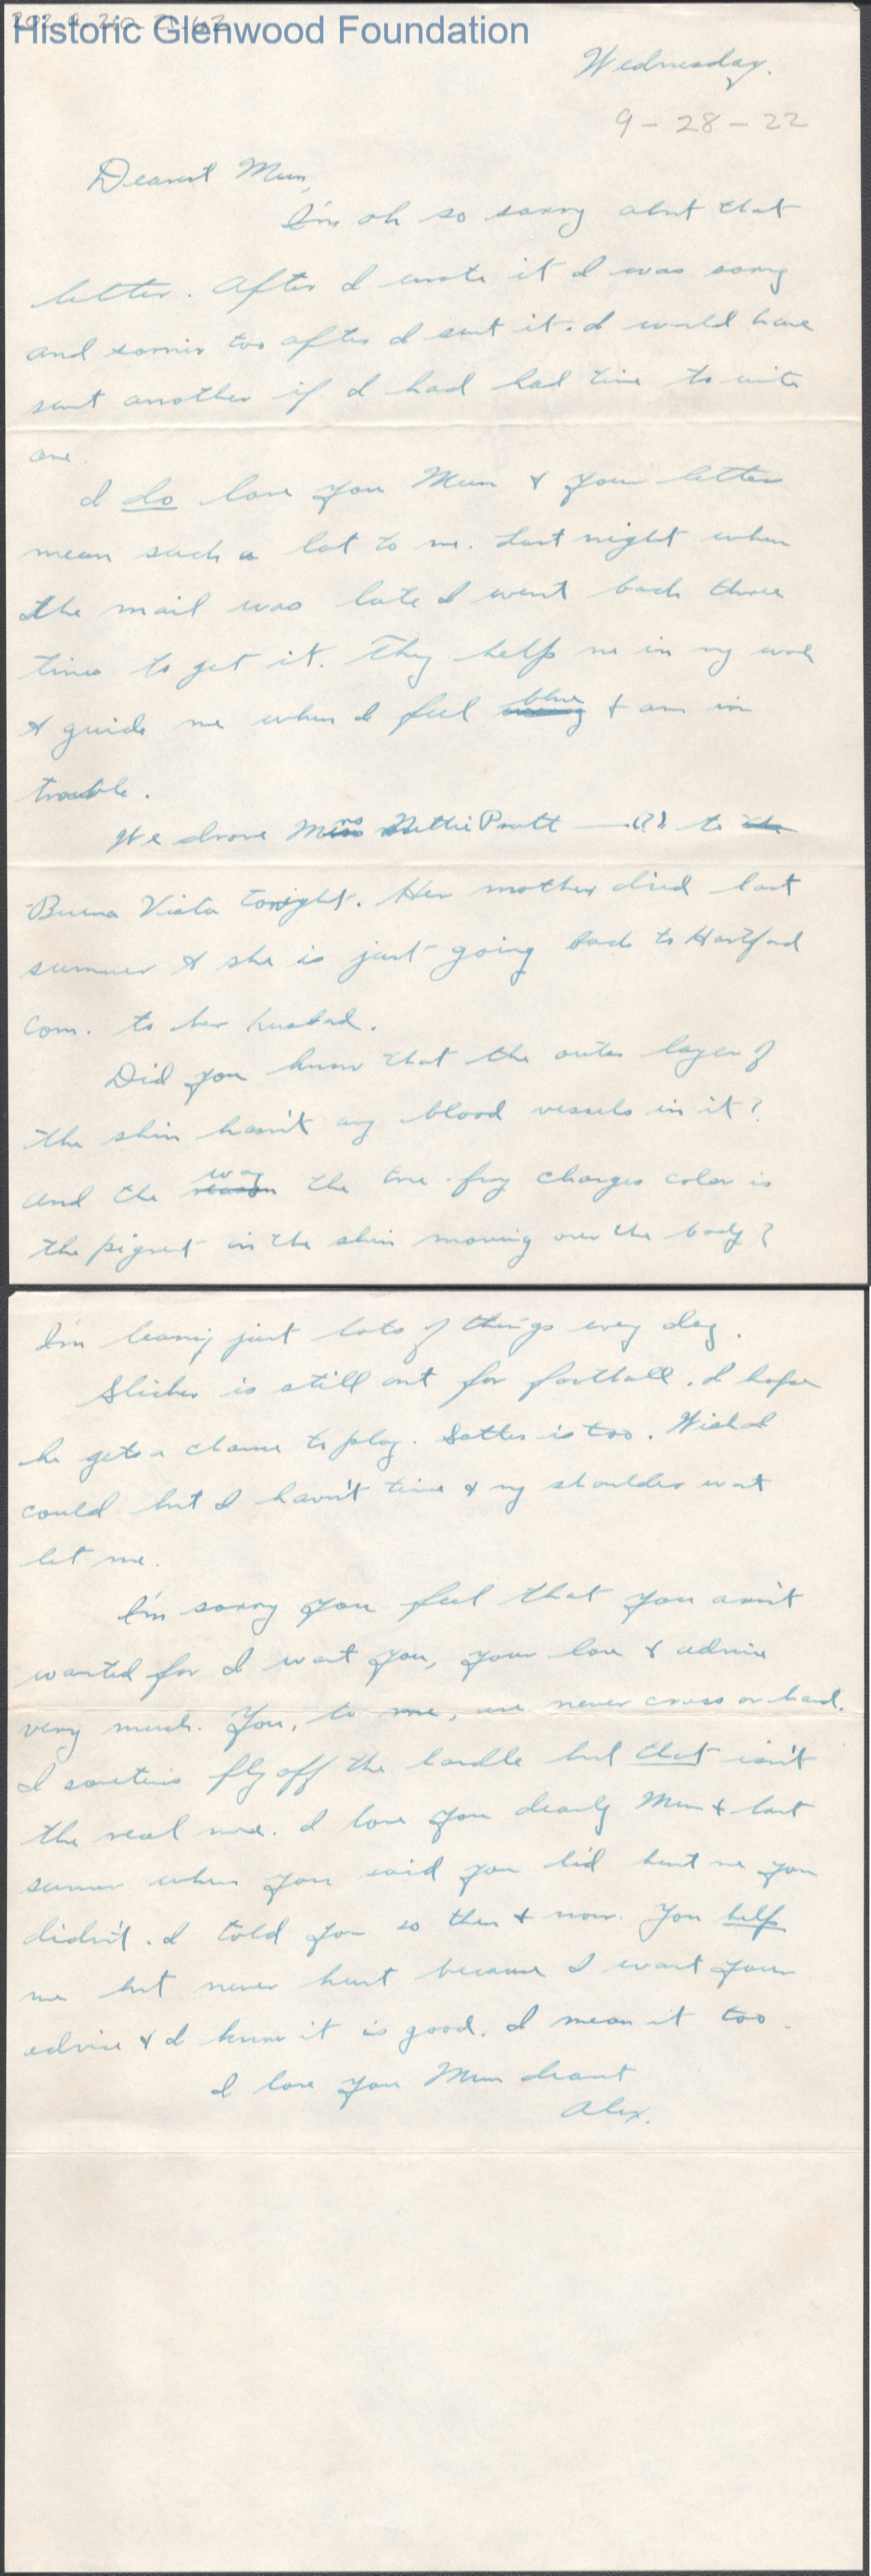 Historic Glenwood Foundation
Wednesday.
9-28-22
Dearest Mum,
I'm oh so sorry about that
letter. After I wrote it I was sorry
and sorrier too after I sent it. I would have
sent another if I had had time to write
one.
I do love you Mum & your letters
mean such a lot to me. Last night when
the mail was late I went back three
times to get it. They help me in my work
& guide me when I feel blue & am in
trouble.
We drove Mrs Nettie Pratt —(?) to the
Buena Vista tonight. Her mother died last
summer & she is just going back to Hartford
Conn. to her husband.
Did you know that the outer layer of
the skin hasn't any blood vessels in it?
and the reason way the tree-frog changes color is
the pigment in the skin moving over the body?
I'm learning just lots of things every day.
Slicher is still out for football. I hope
he gets a chance to play. is too. Wish I
could but I haven't time & my shoulder won't
let me.
I'm sorry you feel that you aren't
wanted for I want you, your love & advice
very much. You, to me, are never cross or hard.
I sometimes fly off the handle but that isn't
the real me. I love you dearly Mum & last
summer when you said you did hurt me you
didn't. I told you so then & now. You help
me but never hurt because I want your
advice & I know it is good. I mean it too.
I love you Mum dearest
Alex.